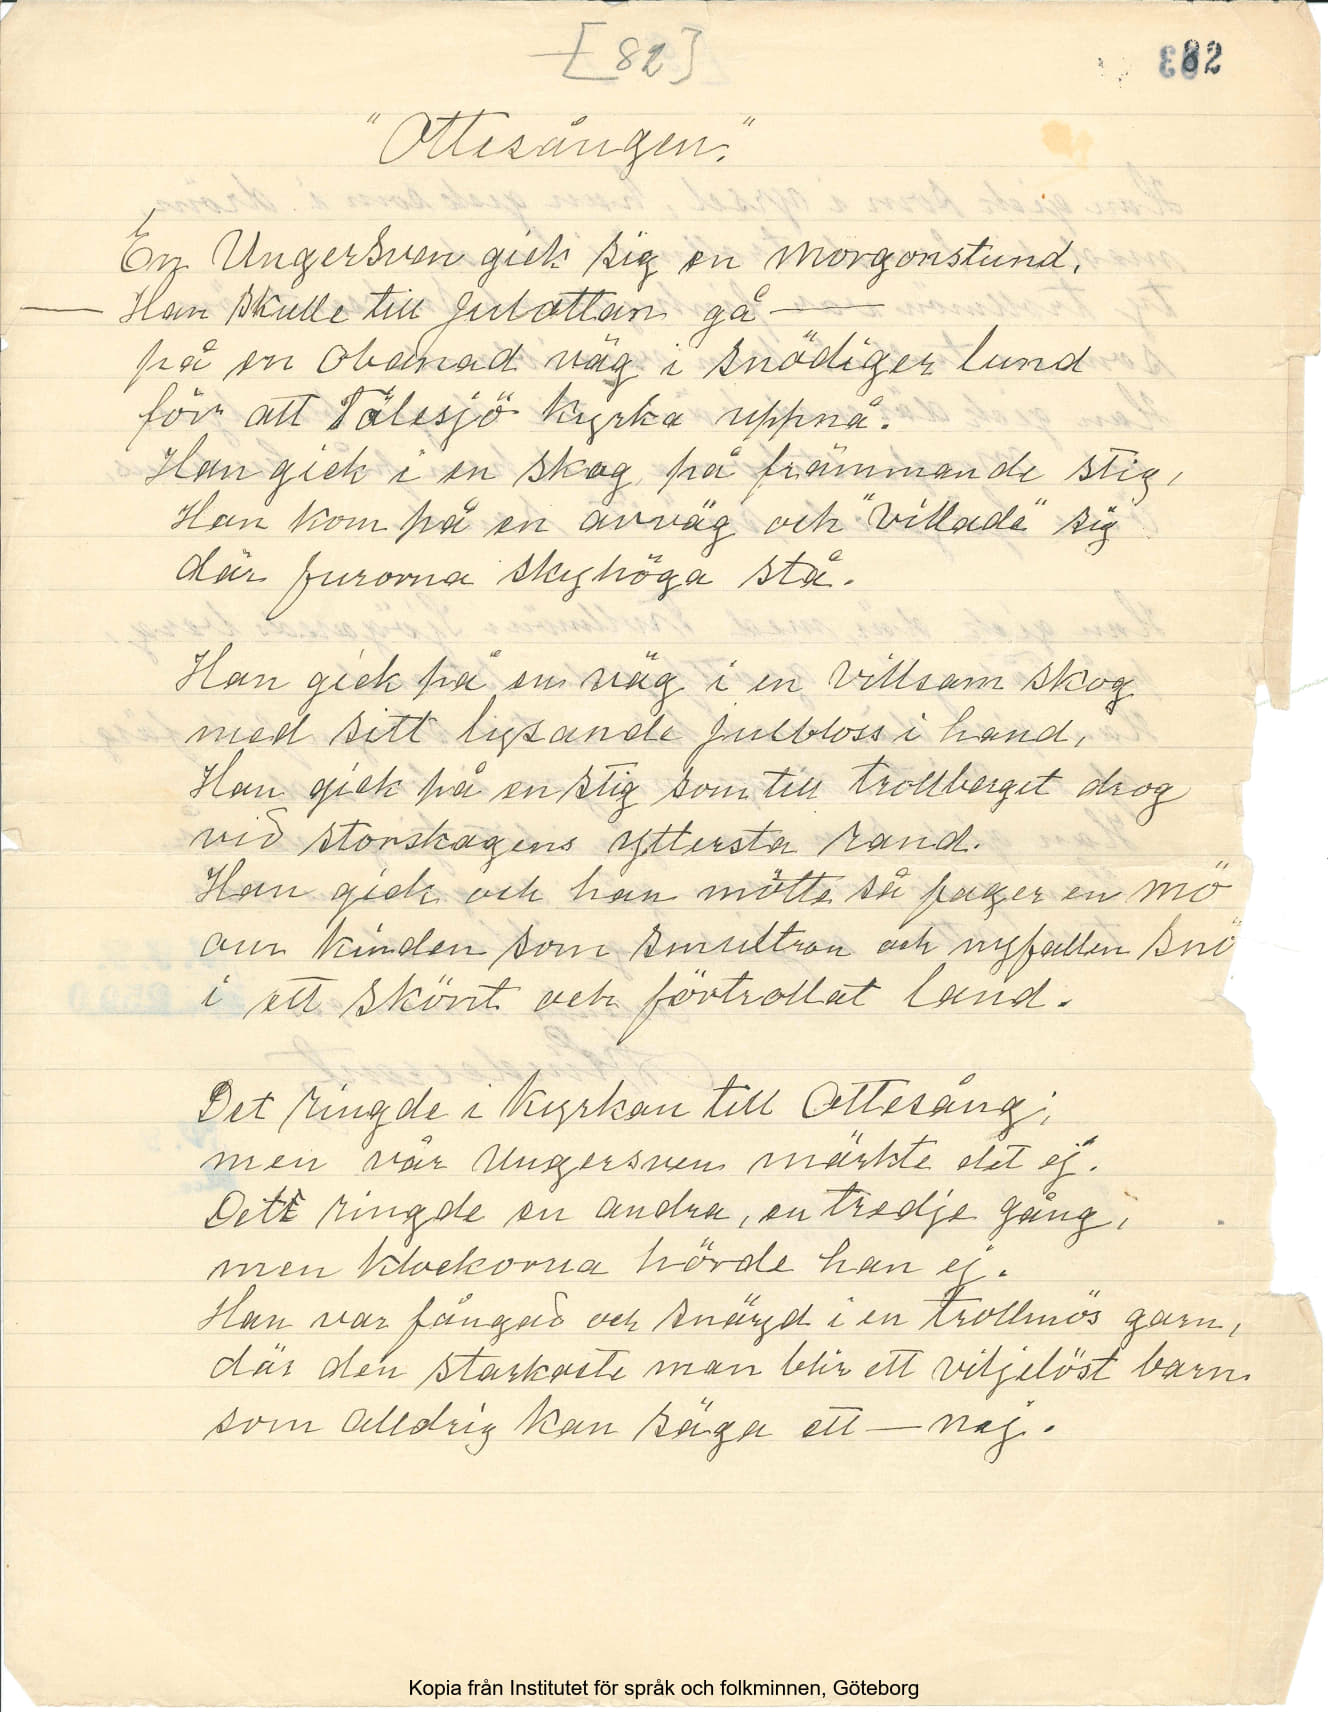 [82]
82
"Ottesången."
En Ungersven gick sig en morgonstund,
— Han skulle till Julottan gå —
på en obanad väg i snödiger lund
för att Tölesjö kyrka uppnå.
Han gick i en skog, på främmande stig,
Han kom på en avväg och "villade" sig
där furorna skyhöga stå.
Han gick på en väg i en villsam skog
med sitt lysande julbloss i hand,
Han gick på en stig som till trollberget drog
vid storskogens yttersta rand.
Han gick och han mötte så fager en mö
om kinden som smultron och nyfallen snö
i ett skönt och förtrollat land.
Det ringde i kyrkan till Ottesång;
men vår Ungersven märkte det ej.
Det ringde en andra, en tredje gång,
men klockorna hörde han ej.
Han var fångad och snärjd i en trollmös garn,
där den starkaste man blir ett viljelöst barn
som alldrig kan säga ett — nej.
Kopia från Institutet för språk och folkminnen, Göteborg